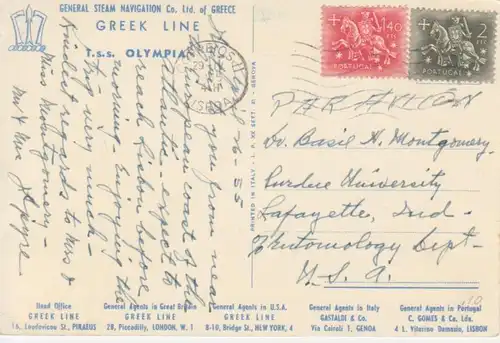 GENERAL STEAM NAVIGATION Co. Ltd. of GREECE
GREEK LINE
T.s.s. OLYMPIA
-6-55
you from near
European coast of the
Atlantic - expect to
reach Lisbon before
morning. Enjoying the
trip very much -
Kindest regards to Mrs &
Miss Montgomery -
Mr & Mrs
PRINTED IN ITALY
GENOVA
LISBOA
1$40
PORTUGAL
2
PORTUGAL
PAR AVION
Dr. Basil H. Montgomery
Purdue University
Lafayette, Ind -
Entomology Dept -
U. S. A.
10
Head Office
GREEK LINE
16, Loudovicou St., PIRAEUS
General Agents in Great Britain
GREEK LINE
28, Piccadilly, LONDON, W. 1
General Agents in U.S.A.
GREEK LINE
8-10, Bridge St., NEW YORK, 4
General Agents in Italy
GASTALDI & Co.
Via Cairoli 1, GENOA
General Agents in Portugal
C. GOMES & Co. Lda.
4 L. Vitorino Damasio, LISBON